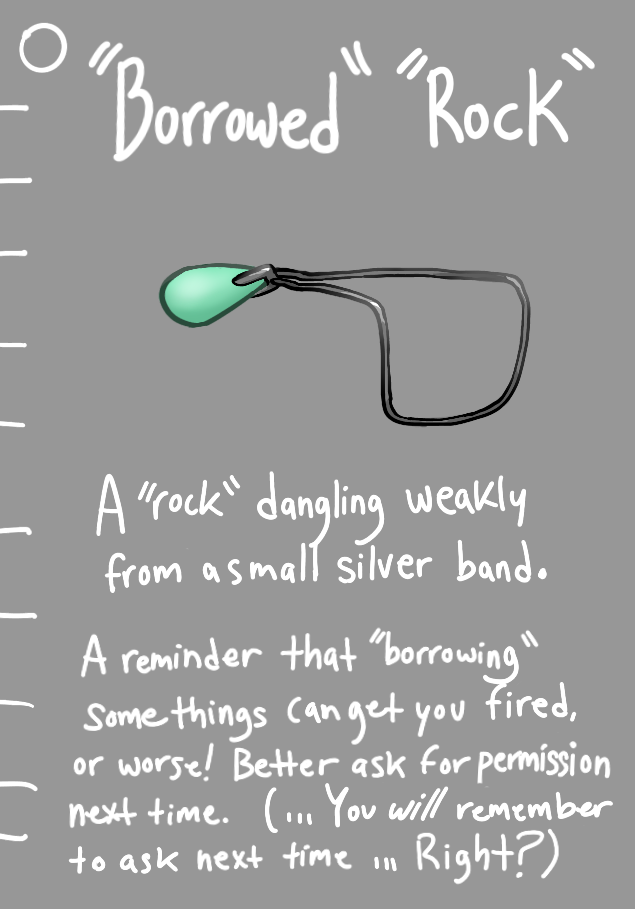 "Borrowed" "Rock"
A "rock" dangling weakly
from a small silver band.
A reminder that "borrowing"
Some things can get you fired,
or worse! Better ask for permission
next time. (... You will remember
to ask next time ... Right?)